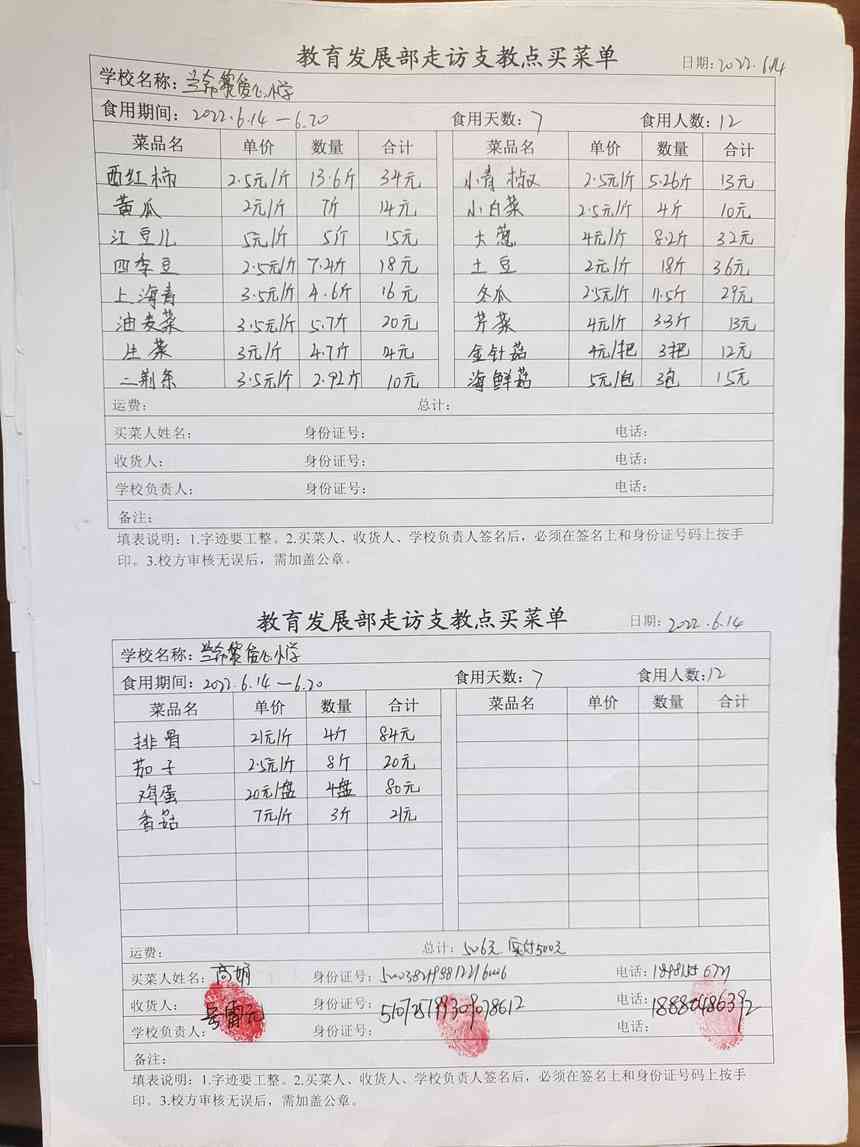 教育发展部走访支教点买菜单 日期:2022.6.14
学校名称: 爱心小学
食用期间: 2022.6.14—6.20 食用天数: 7 食用人数: 12
菜品名 单价 数量 合计 菜品名 单价 数量 合计
西红柿 2.5元/斤 13.6斤 34元 小青椒 2.5元/斤 5.26斤 13元
黄瓜 2元/斤 7斤 14元 小白菜 2.5元/斤 4斤 10元
江豆儿 5元/斤 5斤 15元 大葱 4元/斤 8.2斤 32元
四季豆 2.5元/斤 7.2斤 18元 土豆 2元/斤 18斤 36元
上海青 3.5元/斤 4.6斤 16元 冬瓜 2.5元/斤 11.5斤 29元
油麦菜 3.5元/斤 5.7斤 20元 芹菜 4元/斤 3.3斤 13元
生菜 3元/斤 4.7斤 14元 金针菇 4元/把 3把 12元
二荆条 3.5元/斤 2.92斤 10元 海鲜菇 5元/包 3包 15元
运费: 总计:
买菜人姓名: 身份证号: 电话:
收货人: 身份证号: 电话:
学校负责人: 身份证号: 电话:
备注:
填表说明: 1.字迹要工整。2.买菜人、收货人、学校负责人签名后，必须在签名上和身份证号码上按手
印。3.校方审核无误后，需加盖公章。
教育发展部走访支教点买菜单 日期: 2022.6.14
学校名称: 爱心小学
食用期间: 2022.6.14—6.20 食用天数: 7 食用人数:12
菜品名 单价 数量 合计 菜品名 单价 数量 合计
排骨 21元/斤 4斤 84元
茄子 2.5元/斤 8斤 20元
鸡蛋 20元/盘 4盘 80元
香菇 7元/斤 3斤 21元
运费: 总计: 506元 实付500元
买菜人姓名: 高娟 身份证号: 电话:
收货人: 身份证号: 电话:
学校负责人: 身份证号: 电话:
备注:
填表说明: 1.字迹要工整。2.买菜人、收货人、学校负责人签名后，必须在签名上和身份证号码上按手
印。3.校方审核无误后，需加盖公章。